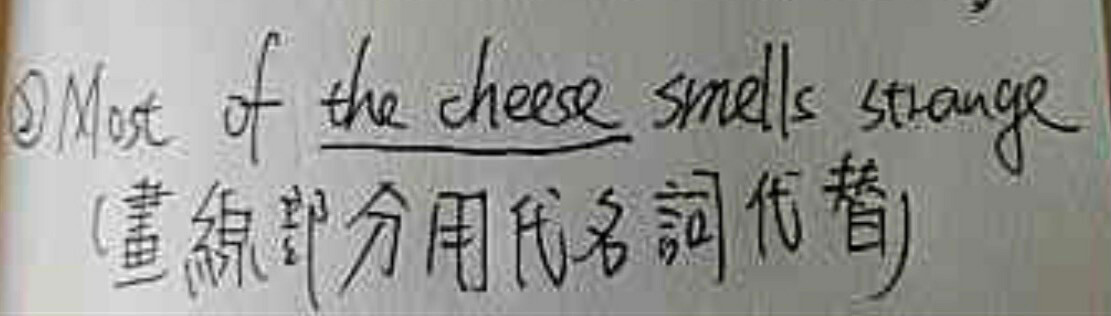 ②Most of the cheese smells strange
(畫線部分用代名詞代替)